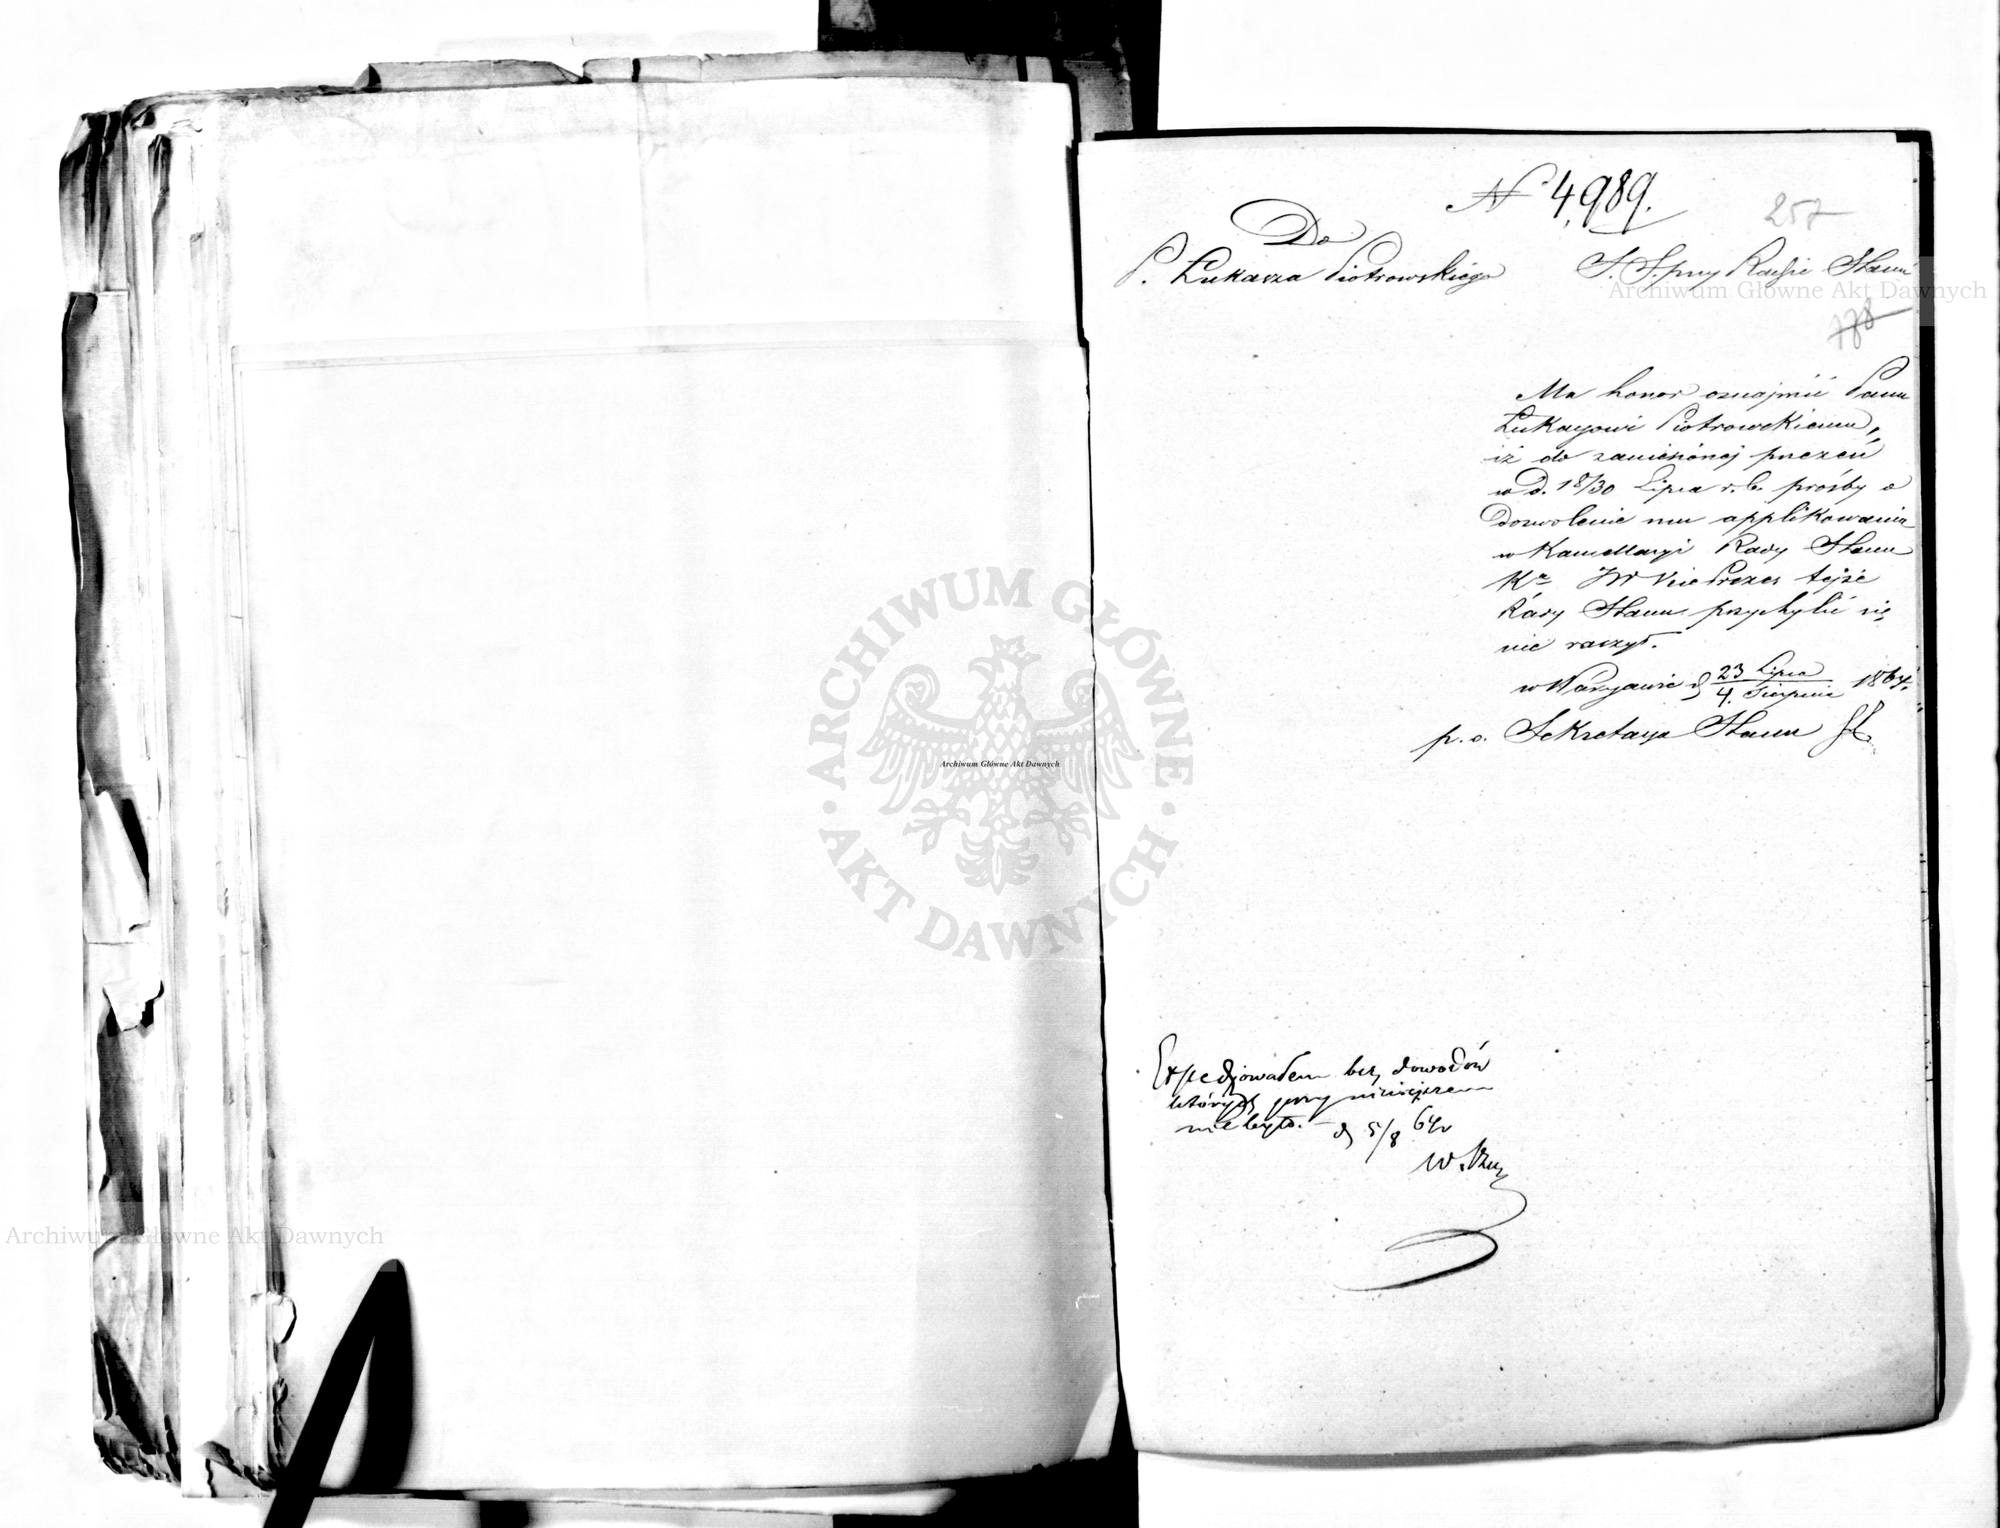 N 4,989.
257
Do
P. Łukasza Piotrowskiego
S. S. przy Radzie Stanu
178
Ma honor oznajmić Panu
Łukaszowi Piotrowskiemu,
iż do zaniesionej przezeń
w d. 18/30 Lipca r. b. prośby o
Dozwolenie mu applikowania
w Kancellaryi Rady Stanu
Kr. JW Vice Prezes tejże
Rady Stanu przychylić się
nie raczył.
w Warszawie d 23 Lipca / 4. Sierpnia 1864.
p. o. Sekretarza Stanu
Expedjowałem bez dowodów
których przy niniejszem
nie było. – d 5/8 64 r
W.
Archiwum Główne Akt Dawnych
Archiwum Główne Akt Dawnych
Archiwum Główne Akt Dawnych
ARCHIWUM GŁÓWNE
AKT DAWNYCH